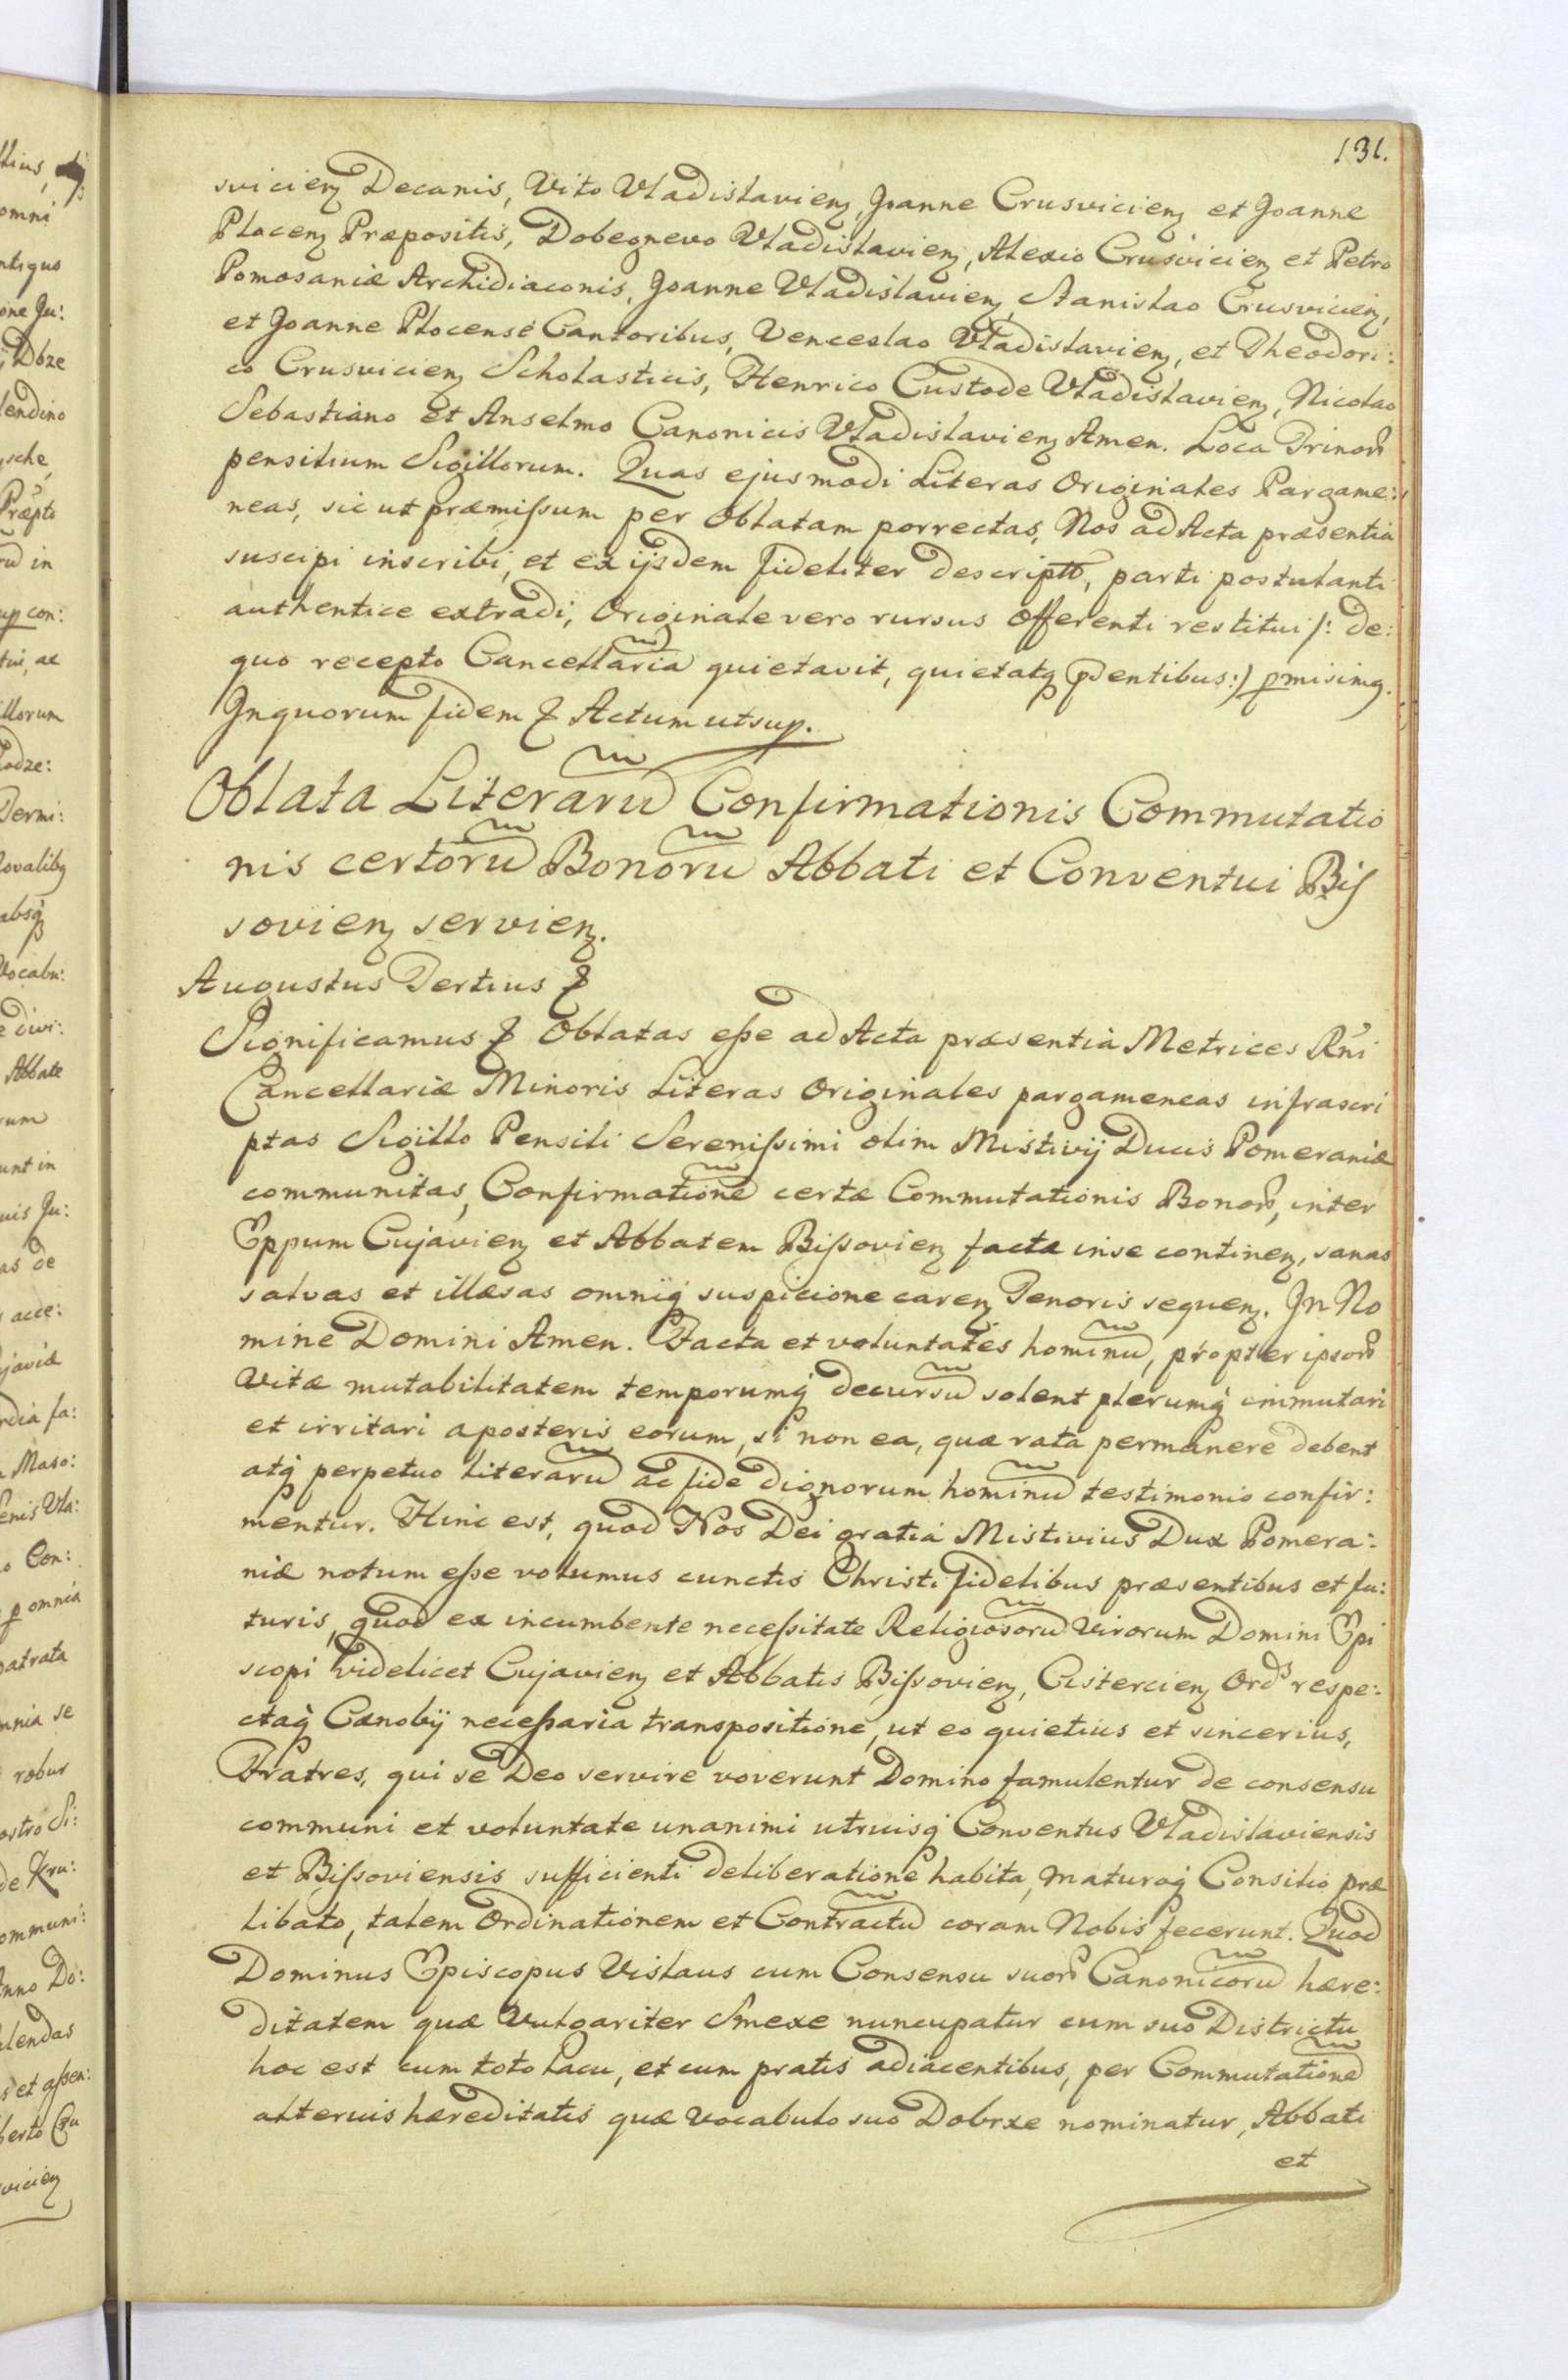 131.
svicien Decanis, Vito Vladislavien, Joanne Crusvicien et Joanne
Plocen Præpositis, Dobegnevo Vladislavien, Alexio Crusvicien et Petro
Pomosaniæ Archidiaconis, Joanne Vladislavien, Stanislao Crusvicien,
et Joanne Plocense Cantoribus, Venceslao Vladislavien, et Theodori:
co Crusvicien Scholasticis, Henrico Custode Vladislavien, Nicolao
Sebastiano et Anselmo Canonicis Vladislavien Amen. Loca Trinor
pensilium Sigillorum. Quas ejusmodi Literas Originales Pargame:
neas, sic ut præmissum per Oblatam porrectas, Nos ad Acta præsentia
suscipi inscribi, et ex ijsdem fideliter descriptũ, parti postulanti
authentice extradi, Originale vero rursus Offerenti restitui /: de:
quo recepto Cancellaria quietavit, quietatq pñtentibus:/ pmisimq.
Inquorum fidem & Actum ut sup.
Oblata Literarũ Confirmationis Commutatio
nis certorũ Bonorũ Abbati et Conventui Bis
sovien servien.
Augustus Tertius &
Significamus & Oblatas esse ad Acta præsentia Metrices Rñi
Cancellariæ Minoris Literas Originales pargameneas infrascri
ptas Sigillo Pensili Serenissimi olim Mistivij Ducis Pomeraniæ
communitas, Confirmationẽ certæ Commutationis Bonor, inter
Eppum Cujavien et Abbatem Bissovien factæ in se continen, sanas
salvas et illæsas omniq suspicione caren Tenoris sequen. In No
mine Domini Amen. Facta et voluntates hominũ, propter ipsor
Vitæ mutabilitatem temporumq decursũ solent plerumq immutari
et irritari a posteris eorum, si non ea, quæ rata permanere debent
atq perpetuo literarũ ac fide dignorum hominũ testimonio confir:
mentur. Hinc est, quod Nos Dei gratia Mistivius Dux Pomera:
niæ notum esse volumus cunctis Christi fidelibus præsentibus et fu:
turis, quod ex incumbente necessitate Religiosorũ Virorum Domini Epi
scopi videlicet Cujavien et Abbatis Bissovien, Cistercien Ords respe:
ctaq Cænobij necessaria transpositione, ut eo quietius et sincerius,
Fratres, qui se Deo servire voverunt Domino famulentur de consensu
communi et voluntate unanimi utriusq Conventus Vladislaviensis
et Bissoviensis sufficienti deliberatione habita, maturoq Consilio præ
libato, talem Ordinationem et Contractũ coram Nobis fecerunt. Quod
Dominus Episcopus Vislaus cum Consensu suor Canonicorũ hære:
ditatem quæ Vulgariter Smexe nuncupatur cum suo Districtu
hoc est cum toto Lacu, et cum pratis adiacentibus, per Commutationẽ
alterius hæreditatis quæ Vocabulo suo Dobrxe nominatur, Abbati
et